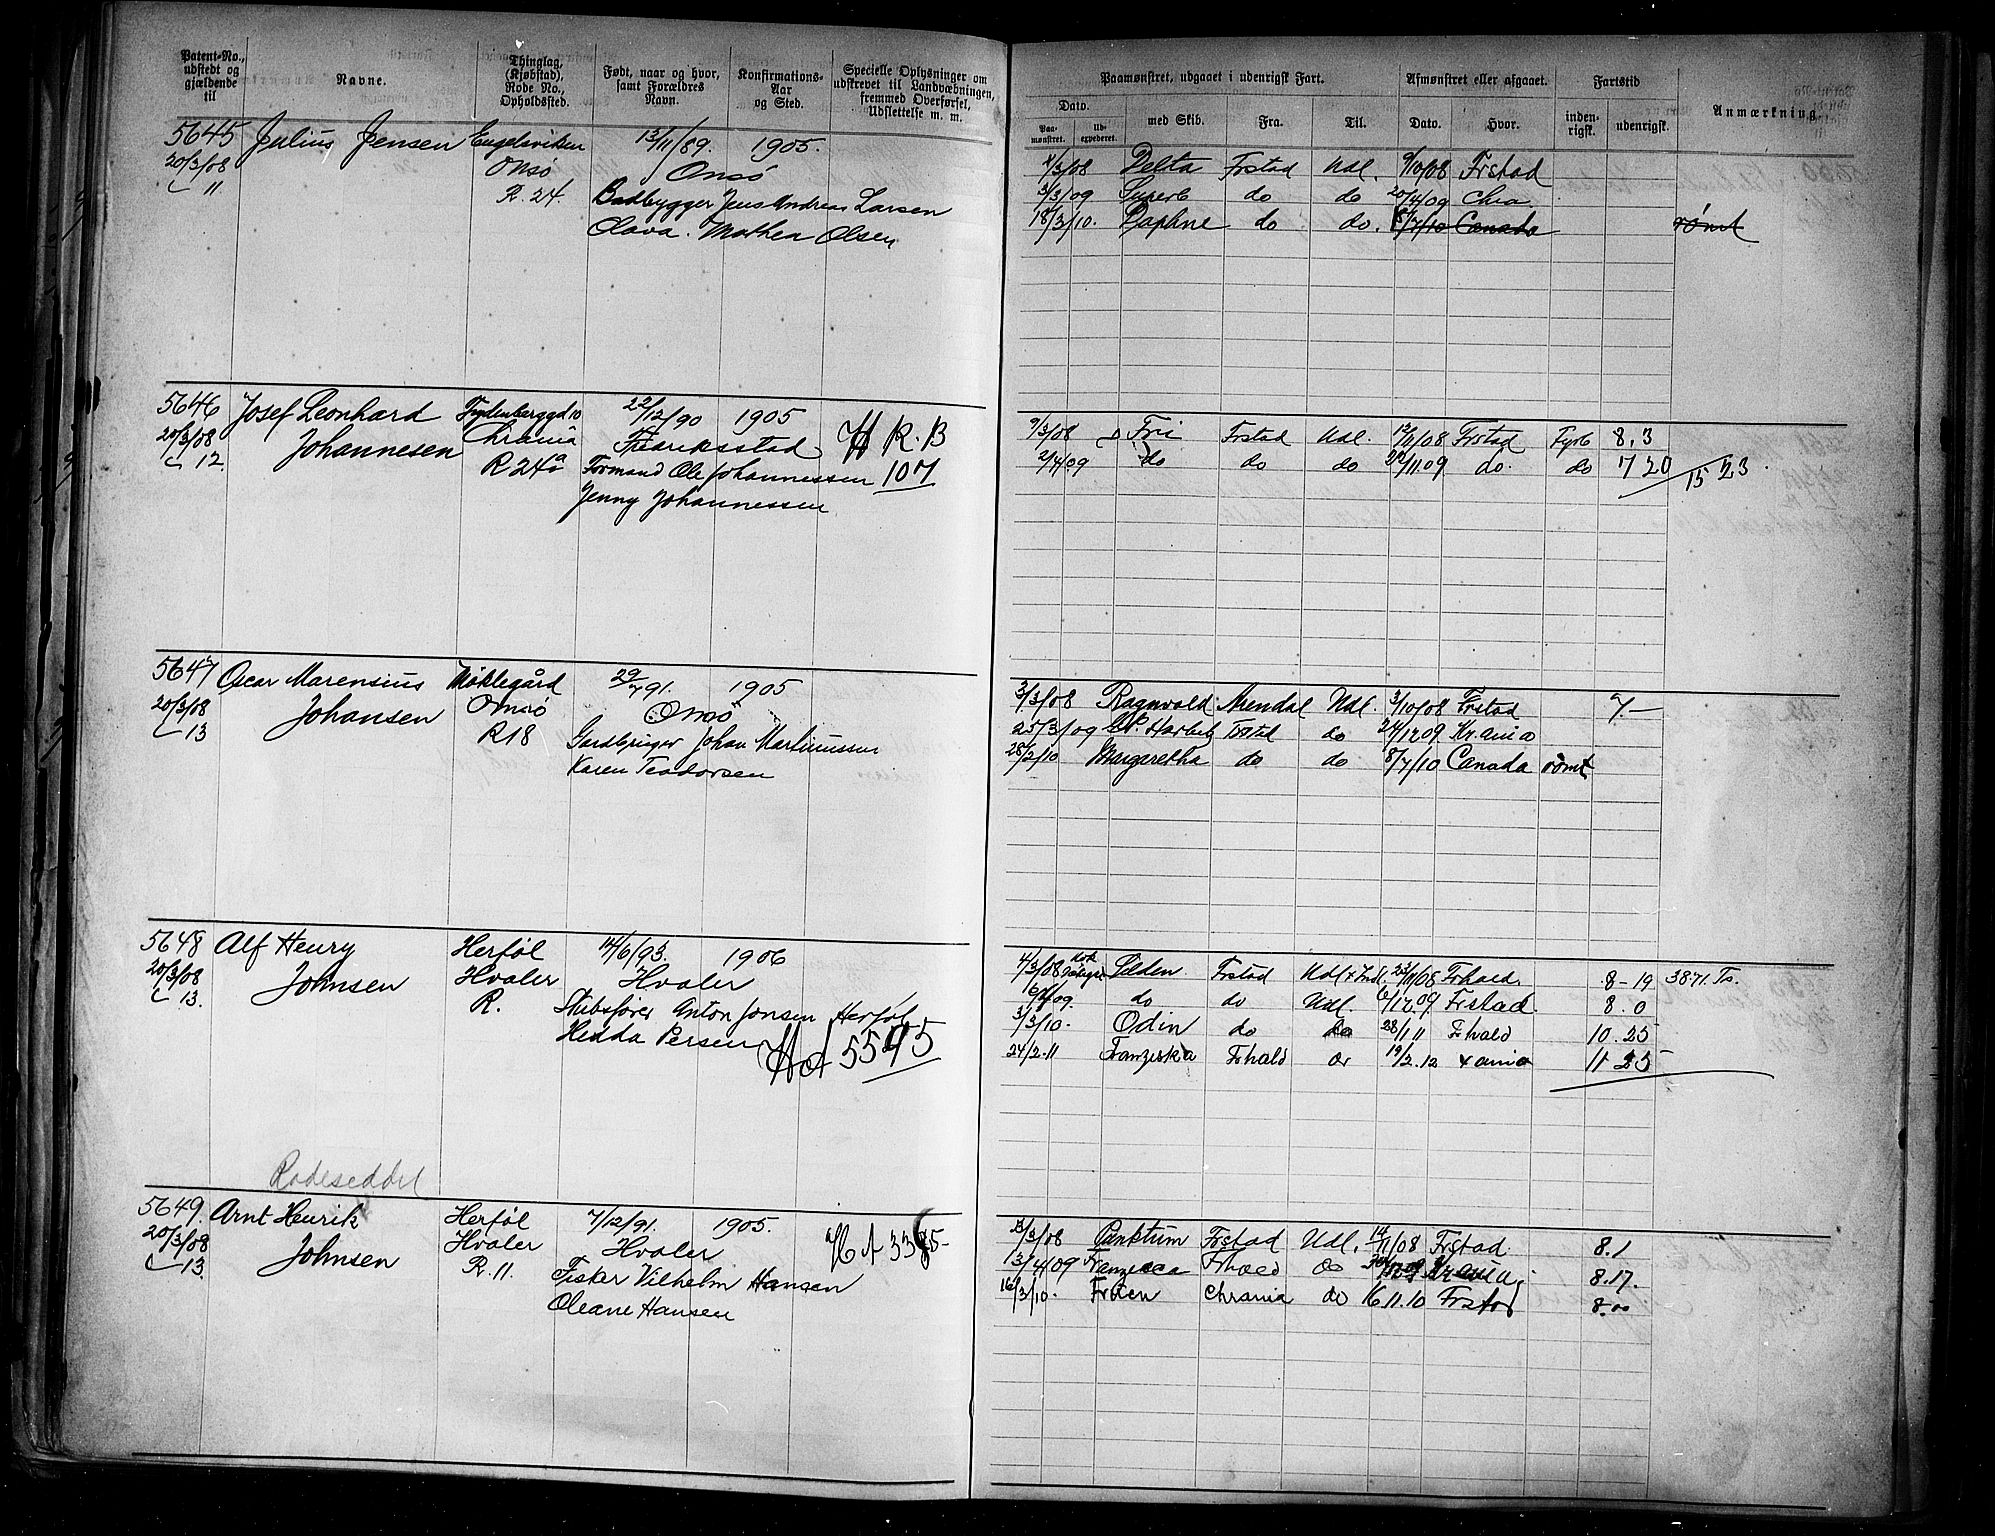 Patent-No., udstedt og gjældende til
Navne.
Thinglag, (Kjøbstad), Rode No., Opholdssted.
Født, naar og hvor, samt Forældres Navn.
Konfirmations-Aar og Sted.
Specielle Oplysninger om udskrevet til Landvæbningen, fremmed Overførsel, Udslettelse m. m.
Paamønstret, udgaaet i udenrigsk Fart.
Afmønstret eller afgaaet.
Fartstid
Anmærkning.
Dato.
Paamønstret.
Udexpederet.
med Skib.
Fra.
Til.
Dato.
Hvor.
indenrigsk.
udenrigsk.
5645 Julius Jensen Engelsviken 13/11/89. 1905.
20/3/08 Onsø Onsø
11 R. 24 Baadbygger Jens Andreas Larsen
Olava Mathea Olsen
1/3/08 Delta Frstad Udl. 9/10/08 Frstad
3/3/09 Superb do do 20/4/09 Chra
18/3/10. Daphne do do. 8/7/10 Canada rømt
5646 Josef Leonhard 22/12/90 1905
20/3/08 Johannesen Chrania Fredriksstad H R. B
12. R 24a Formand Ole Johannessen 107
Jenny Johannessen
9/3/08 Fri Frstad Udl. 12/11/08 Frstad Fyrb 8.3
2/4/09 do do do 22/11.09 do. do 7 20 15 23
5647 Oscar Marensius Møklegård 29/7 91. 1905
20/3/08 Johansen Onsø Onsø
13 R18 Gardbruger Johan Martinussen
Karen Teodorsen
3/3/08 Ragnvald Arendal Udl. 3/10/08 Frstad 7.—
25/3/09 Harbitz Frstd do 24/12 09 Krania
28/2/10 Margaretha do do 8/7/10 Canada rømt
5648 Alf Henry Herføl 14/6/93. 1906
20/3/08 Johnsen Hvaler Hvaler
13. R. Skibsfører Anton Jonsen Herføl
Hedda Persen Hd 5545
4/3/08 Gelden Frstad Udl + Indl. 23/11/08 Frhald. 8-19 3871. Ts.
6/4/09. do do Udl. 6/12.09 Frstad. 8.0
3/3/10. Odin do do 28/1 11 Frhald 10.25
24/2.11 Franziska Frhald do 19/2.12 Xania 11 25
Rodeseddel
5649. Arnt Henrik Herføl 7/12/91. 1905.
20/3/08 Johnsen Hvaler Hvaler
13. R. 11. Fisker Vilhelm Hansen
Oleane Hansen
13/3/08 Punktum Frstad Udl. 14/11/08 Frstad. 8.1
13/4/09 Franzesca Frhald do Krania 8.17.
16/3/10. Chrania do 16.11.10 Frstad 8.00